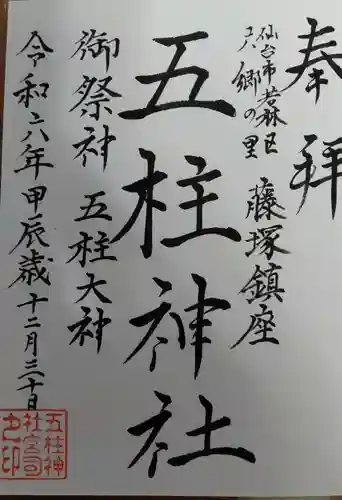 奉拝
仙台市若林区
郷の里
藤塚鎮座
五柱神社
御祭神 五柱大神
令和六年甲辰歳十二月三十日
五柱神
社宮司
之印